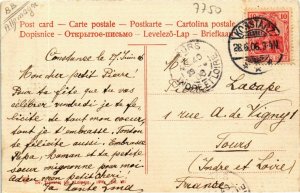 7750
Post card - Carte postale - Postkarte - Cartolina postale
Dopisnice - Открытое письмо - Levelező-Lap - Briefkaart
KONSTANZ
28.6.06
10
Constance le 27 Juin 06
Mon cher petit Pierre!
Pour ta fête que tu vas
célébrer vendredi je te fé-
licite de tout mon cœur,
tout en t'embrassant, Tonton
te félicite aussi. Embrasse
Papa, Maman et ta petite
sœur mignonne pour moi.
Ta tante
TOURS
INDRE ET LOIRE
M. Pierre Lacape
1 rue A. de Vigny
Tours
Indre et Loire
France